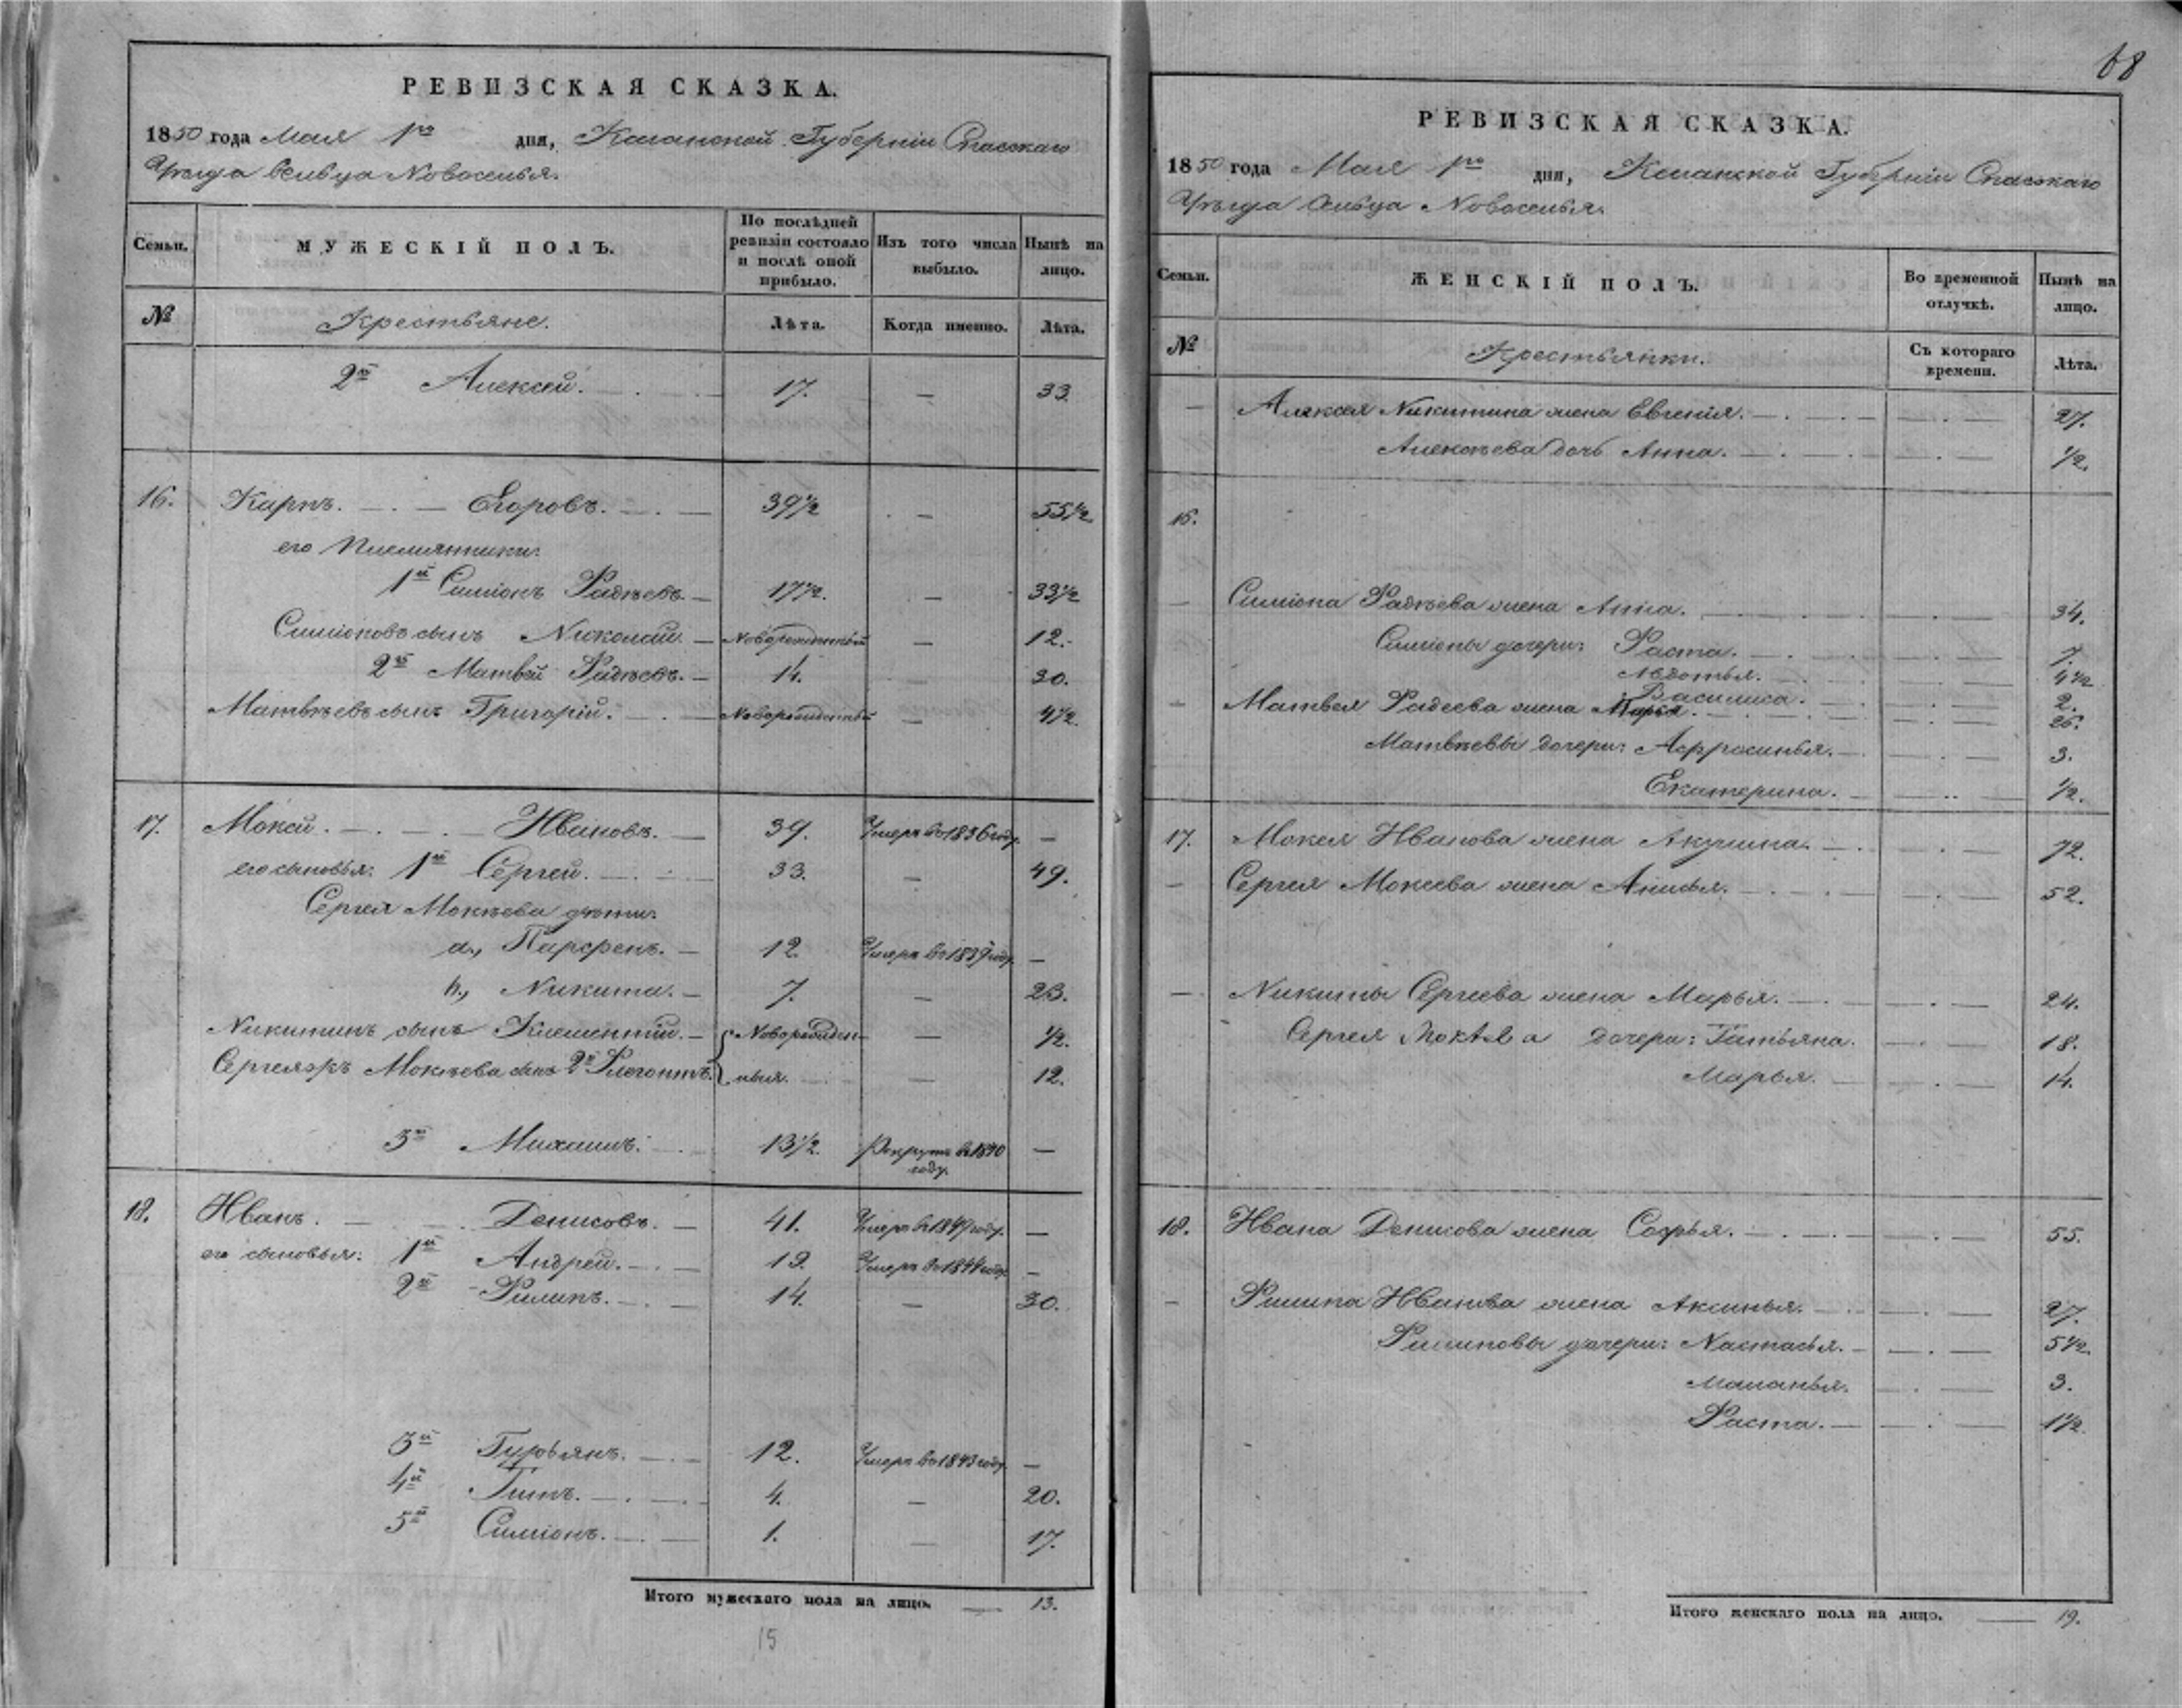 РЕВИЗСКАЯ СКАЗКА.
1850 года Мая 1го дня, Казанской Губерніи Спасскаго
Уѣзда Сельца Новоселья.
Семьи. МУЖЕСКІЙ ПОЛЪ. По послѣдней ревизіи состояло и послѣ оной прибыло. Изъ того числа выбыло. Нынѣ на лицо.
№ Крестьяне. Лѣта. Когда именно. Лѣта.
2й Алексей. 17. — 33.
16. Карпъ. Егоровъ. 39½ — 55½
его племянники:
1й Симіонъ Фадѣевъ. 17½. — 33½
Симіоновъ сынъ Николай. Новорожденный — 12.
2й Матвей Фадѣевъ. 14. — 30.
Матвѣевъ сынъ Григорій. Новорожденный — 4½.
17. Мокей. Ивановъ. 39. Умеръ во 1836 году. —
его сыновья: 1й Сергей. 33. — 49.
Сергея Мокѣева дѣти:
а., Парфенъ. 12. Умеръ въ 1839 году. —
в., Никита. 7. — 23.
Никитинъ сынъ Клементій. Новорожден- — ½.
Сергея жъ Мокѣева сынъ 2й Флегонтъ. ныя. — 12.
3й Михаилъ. 13½. Рекрутъ въ 1840 году. —
18. Иванъ. Денисовъ. 41. Умеръ въ 1849 году. —
его сыновья: 1й Андрей. 19. Умеръ въ 1844 году. —
2й Филипъ. 14. — 30.
3й Гурьянъ. 12. Умеръ въ 1843 году. —
4й Титъ. 4. — 20.
5й Симіонъ. 1. — 17.
Итого мужескаго пола на лицо. — 13.
15
68
РЕВИЗСКАЯ СКАЗКА.
1850 года Мая 1го дня, Казанской Губерніи Спасскаго
Уѣзда Сельца Новоселья.
Семьи. ЖЕНСКІЙ ПОЛЪ. Во временной отлучкѣ. Нынѣ на лицо.
№ Крестьянки. Съ котораго времени. Лѣта.
— Алексея Никитина жена Евгенія. — 27.
Алексѣева дочь Анна. — ½.
16.
— Симіона Фадѣева жена Анна. — 34.
Симіоны дочери: Фаста. — 7.
Авдотья. — 4½
Василиса. — 2.
— Матвея Фадеева жена Марья. — 26.
Матвѣевы дочери: Афросинья. — 3.
Екатерина. — ½.
17. Мокея Иванова жена Акулина. — 72.
— Сергея Мокеева жена Анисья. — 52.
— Никиты Сергеева жена Марья. — 24.
Сергея Мокѣева дочери: Татьяна. — 18.
Марья. — 14.
18. Ивана Денисова жена Софья. — 55.
— Филипа Иванова жена Аксинья. — 27.
Филиповы дочери: Настасья. — 5½.
Маланья. — 3.
Фаста. — 1½
Итого женскаго пола на лицо. — 19.